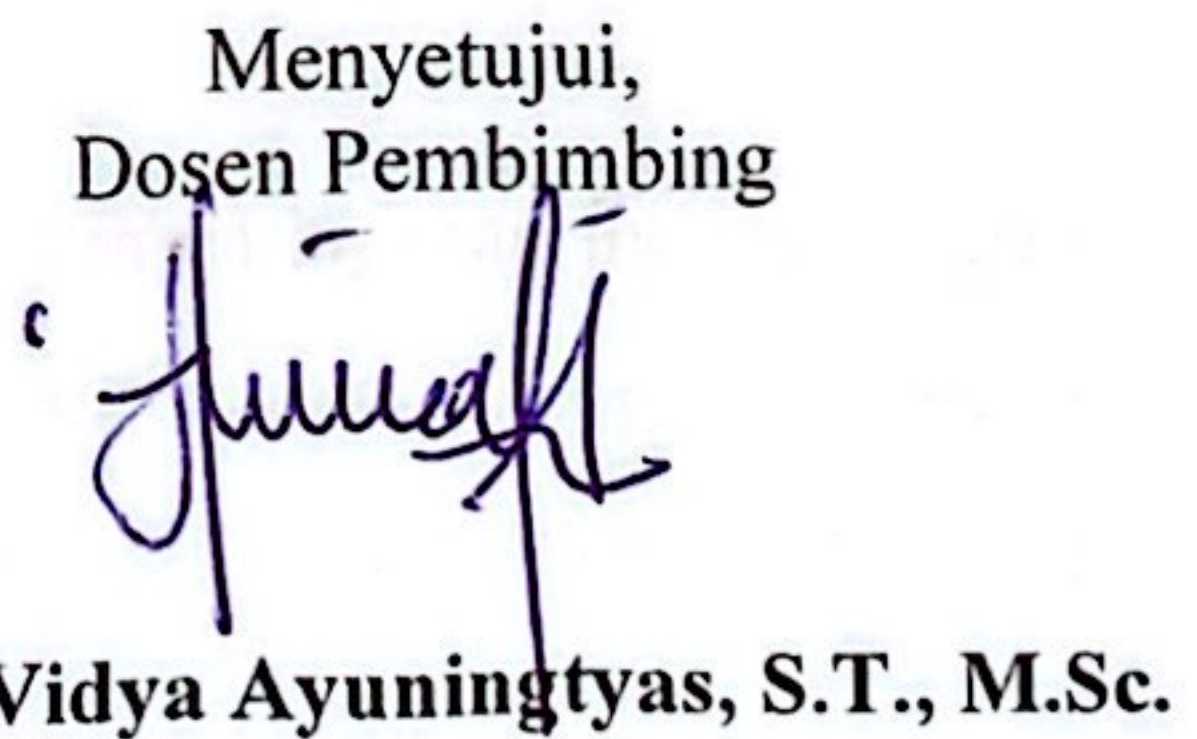 Menyetujui,
Dosen Pembimbing
Vidya Ayuningtyas, S.T., M.Sc.